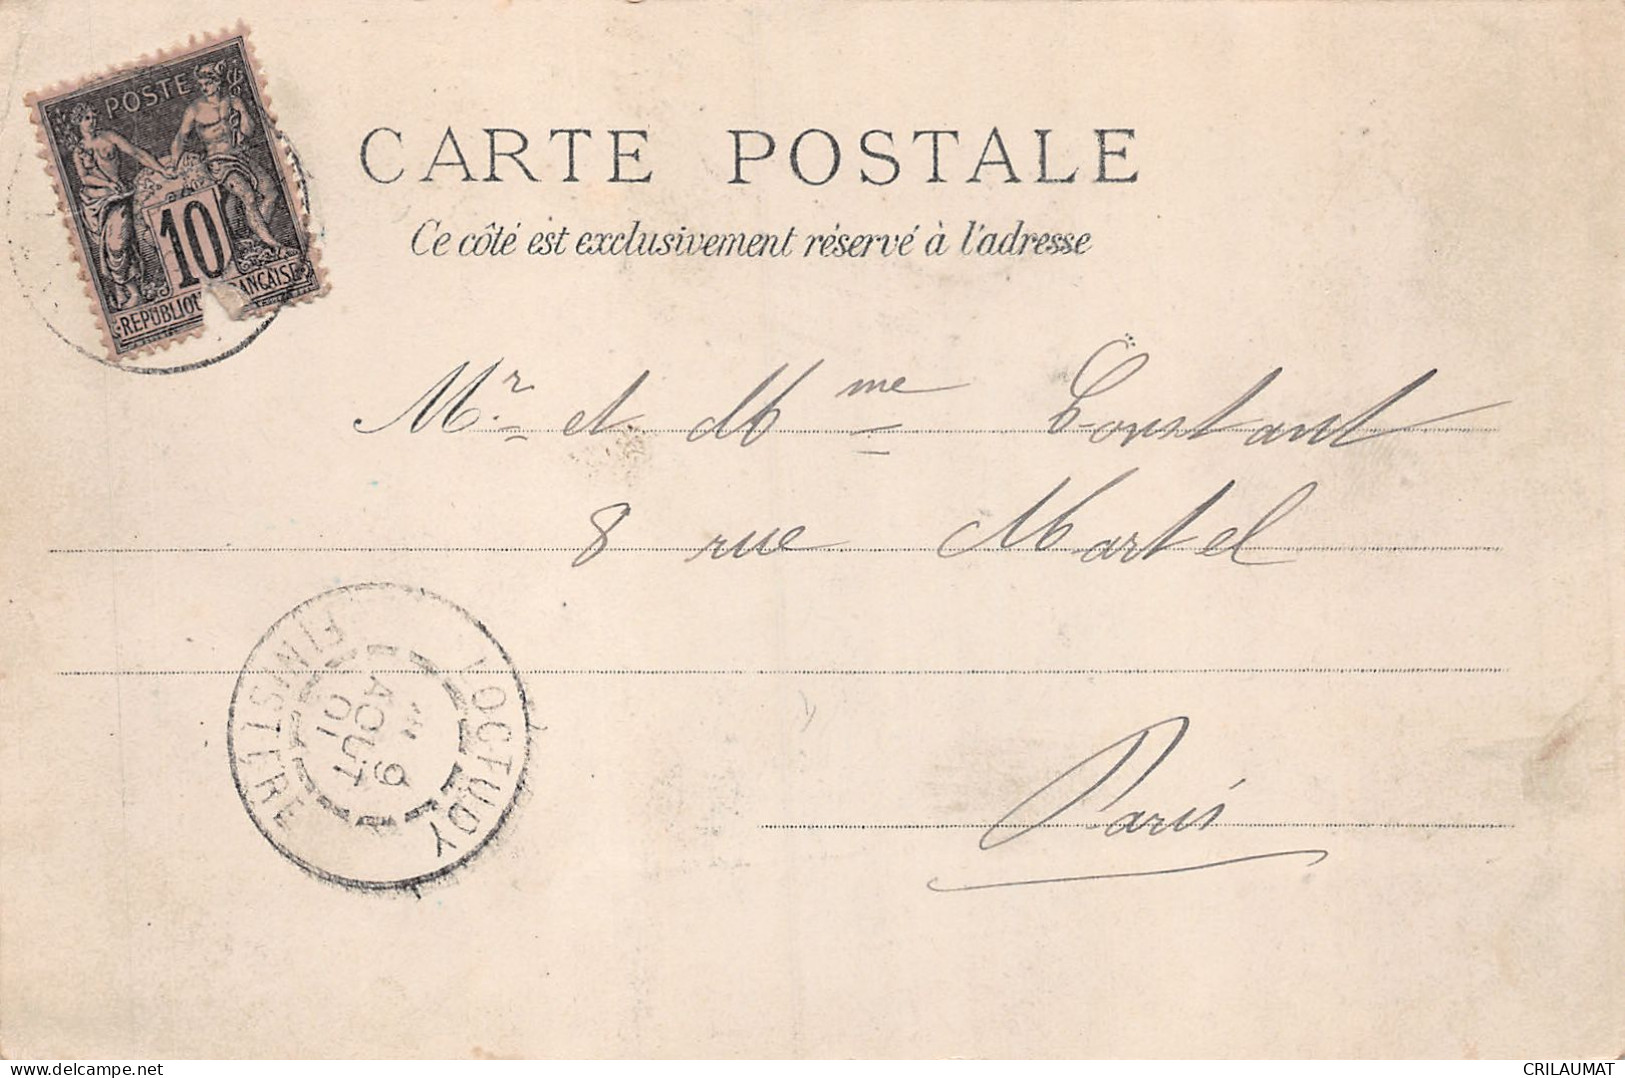 POSTE
10
REPUBLIQUE FRANÇAISE
CARTE POSTALE
Ce côté est exclusivement réservé à l'adresse
Mr. et Mme Constant
8 rue Martel
Paris
LOCTUDY
9
AOUT
01
FINISTERE
delcampe.net
CRILAUMAT